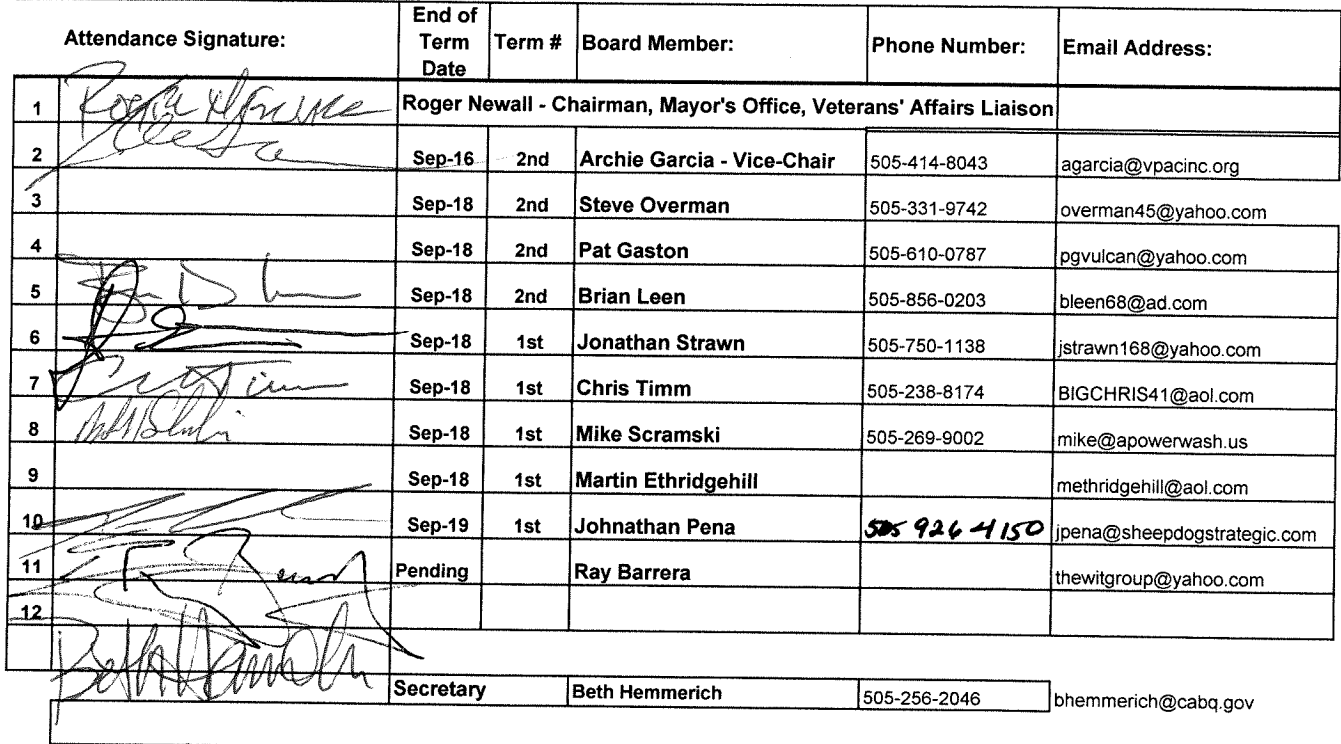 Attendance Signature: End of Term Date Term # Board Member: Phone Number: Email Address:
1 Roger Newall - Chairman, Mayor's Office, Veterans' Affairs Liaison
2 Sep-16 2nd Archie Garcia - Vice-Chair 505-414-8043 agarcia@vpacinc.org
3 Sep-18 2nd Steve Overman 505-331-9742 overman45@yahoo.com
4 Sep-18 2nd Pat Gaston 505-610-0787 pgvulcan@yahoo.com
5 Sep-18 2nd Brian Leen 505-856-0203 bleen68@ad.com
6 Sep-18 1st Jonathan Strawn 505-750-1138 jstrawn168@yahoo.com
7 Sep-18 1st Chris Timm 505-238-8174 BIGCHRIS41@aol.com
8 Sep-18 1st Mike Scramski 505-269-9002 mike@apowerwash.us
9 Sep-18 1st Martin Ethridgehill methridgehill@aol.com
10 Sep-19 1st Johnathan Pena 505 926 4150 jpena@sheepdogstrategic.com
11 Pending Ray Barrera thewitgroup@yahoo.com
12
Beth Hemmerich Secretary Beth Hemmerich 505-256-2046 bhemmerich@cabq.gov